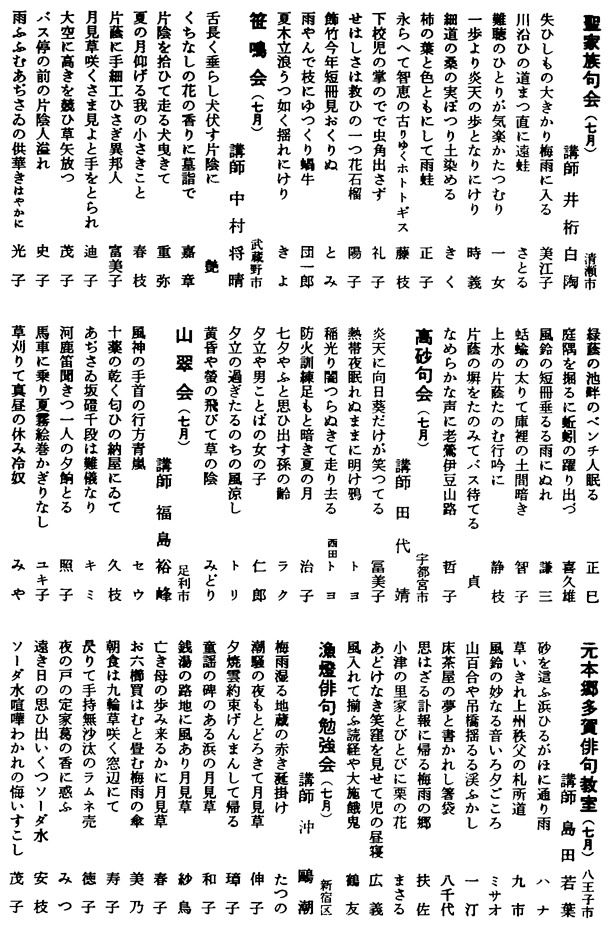 聖家族句会（七月）
清瀬市
講師 井桁 白陶
失ひしもの大きかり梅雨に入る 美江子
川沿ひの道まつ直に遠蛙 さとる
難聴のひとりが気楽かたつむり 一女
一歩より炎天の歩となりにけり 時義
細道の桑の実ぽつり土染める きく
柿の葉と色ともにして雨蛙 正子
永らへて智恵の古りゆくホトトギス 藤枝
下校児の掌のでで虫角出さず 礼子
せはしさは救ひの一つ花石榴 陽子
飾竹今年短冊見おくりぬ とみ
雨やんで枝にゆつくり蝸牛 団一郎
夏木立浪うつ如く揺れにけり きよ
笹鳴会（七月）
武蔵野市
講師 中村 将晴
舌長く垂らし犬伏す片陰に 艶
くちなしの花の香りに墓詣で 嘉章
片陰を拾ひて走る犬曳きて 重弥
夏の月仰げる我の小さきこと 春枝
片蔭に手細工ひさぎ異邦人 富美子
月見草咲くさま見よと手をとられ 迪子
大空に高きを競ひ草矢放つ 茂子
バス停の前の片陰人溢れ 史子
雨ふふむあぢさゐの供華きはやかに 光子
緑蔭の池畔のベンチ人眠る 正巳
庭隅を掘るに蚯蚓の躍り出づ 喜久雄
風鈴の短冊垂るる雨にぬれ 謙三
蛞蝓の太りて庫裡の土間暗き 智子
上水の片蔭たのむ行吟に 静枝
片蔭の塀をたのみてバス待てる 貞
なめらかな声に老鶯伊豆山路 哲子
高砂句会（七月）
宇都宮市
講師 田代 靖
炎天に向日葵だけが笑つてる 冨美子
熱帯夜眠れぬままに明け鴉 トヨ
稲光り闇つらぬきて走り去る 西田トヨ
防火訓練足もと暗き夏の月 治子
七夕やふと思ひ出す孫の齢 ラク
夕立や男ことばの女の子 仁郎
夕立の過ぎたるのちの風涼し トリ
黄昏や螢の飛びて草の陰 みどり
山翠会（七月）
足利市
講師 福島 裕峰
風神の手首の行方青嵐 セウ
十薬の乾く匂ひの納屋にゐて 久枝
あぢさゐ坂磴千段は難儀なり キミ
河鹿笛聞きつ一人の夕餉とる 照子
馬車に乗り夏霧絵巻かぎりなし ユキ子
草刈りて真昼の休み冷奴 みや
元本郷多賀俳句教室（七月）
八王子市
講師 島田 若葉
砂を這ふ浜ひるがほに通り雨 ハナ
草いきれ上州秩父の札所道 九市
風鈴の妙なる音いろ夕ごころ ミサオ
山百合や吊橋揺るる渓ふかし 一汀
床茶屋の夢と書かれし箸袋 八千代
思はざる訃報に帰る梅雨の郷 扶佐
小津の里家とびとびに栗の花 まさる
あどけなき笑窪を見せて児の昼寝 広義
風入れて揃ふ読経や大施餓鬼 鶴友
漁燈俳句勉強会（七月）
新宿区
講師 沖 鷗潮
梅雨湿る地蔵の赤き涎掛け たつの
潮騒の夜もとどろきて月見草 伸子
夕焼雲約束げんまんして帰る 璋子
童謡の碑のある浜の月見草 和子
銭湯の路地に風あり月見草 紗鳥
亡き母の歩み来るかに月見草 春子
お六櫛買はむと畳む梅雨の傘 美乃
朝食は九輪草咲く窓辺にて 寿子
戻りて手持無沙汰のラムネ売 徳子
夜の戸の定家葛の香に惑ふ みつ
遠き日の思ひ出いくつソーダ水 安枝
ソーダ水喧嘩わかれの悔いすこし 茂子